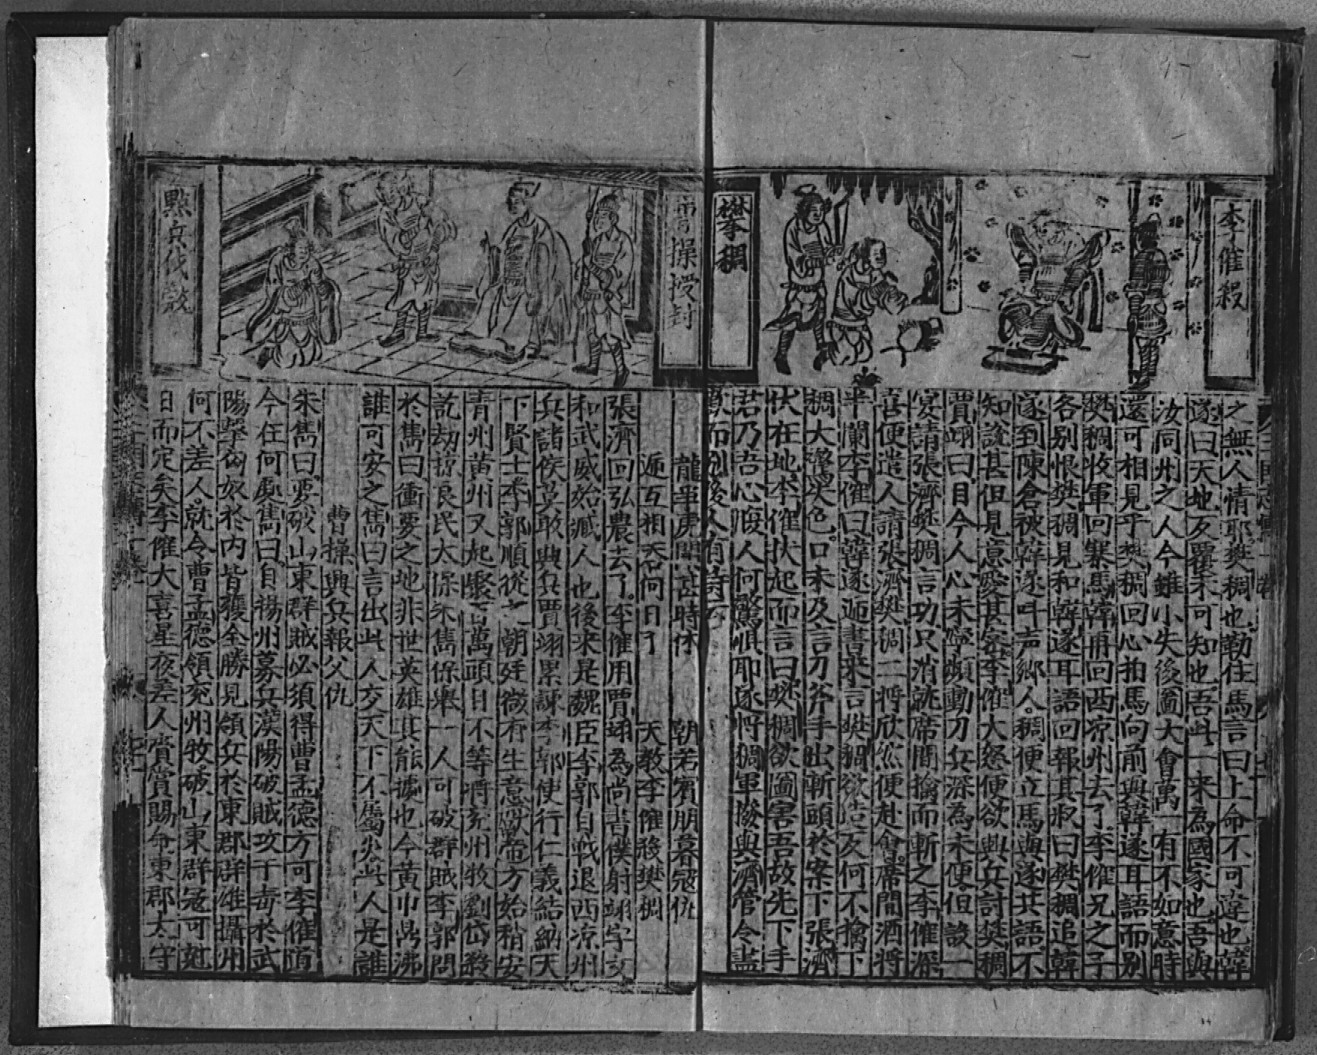 李傕殺
樊稠
之無人情耶樊稠也勒住馬言曰上命不可違也韓
遂曰天地反覆未可知也吾此一來為國家也吾與
汝同州之人今雖小失後圖大會萬一有不如意時
還可相見乎樊稠回心拍馬向前與韓遂耳語而別
樊稠收軍回寨馬韓再回西凉州去了李傕兄之子
各別恨樊稠見和韓遂耳語回報其叔曰樊稠追韓
遂到陳倉被韓遂叫声鄉人稠便立馬與遂共語不
知說甚但見意愛甚密李傕大怒便欲與兵討樊稠
賈翊曰目今人心未寧頻動刀兵深為未便但設一
宴請張濟樊稠言功只消就席間擒而斬之李傕深
喜便遣人請張濟樊稠二將欣然便赴會席間酒將
半闌李傕曰韓遂遞書來言樊稠欲造反何不擒下
稠大驚失色口未及言刀斧手出斬頭於案下張濟
伏在地李傕扶起而言曰樊稠欲圖害吾故先下手
君乃吾心腹人何驚惧耶遂將稠軍撥與濟管令盡
歡而別後人有詩云
曹操授封
點兵伐毅
龍爭虎鬪甚時休 朝若賓朋暮寇仇
遞互相吞何日了 天教李傕殺樊稠
張濟回弘農去了李傕用賈翊為尚書僕射翊字文
和武威姑臧人也後來是魏臣李郭自戰退西凉州
兵諸侯莫敢興兵賈翊累諫李郭使行仁義結納天
下賢士李郭順從之朝廷微有生意獻帝方始稍安
青州黃州又起聚萬頭目不等將兖州牧劉岱殺
訖劫掠良民太保朱雋保舉一人可破群賊李郭問
於雋曰衝要之地非世英雄其能據也今黃巾鼎沸
誰可安之雋曰言出此人交天下不屬必此人是誰
曹操興兵報父仇
朱雋曰要破山東群賊必須得曹孟德方可李傕道
今在何處雋曰自揚州募兵漢陽破賊攻干毒於武
陽擊匈奴於內皆獲全勝見領兵於東郡群雄攝州
何不差人就令曹孟德領兖州牧破山東群寇可尅
日而定矣李傕大喜星夜差人賫賞賜命東郡太守